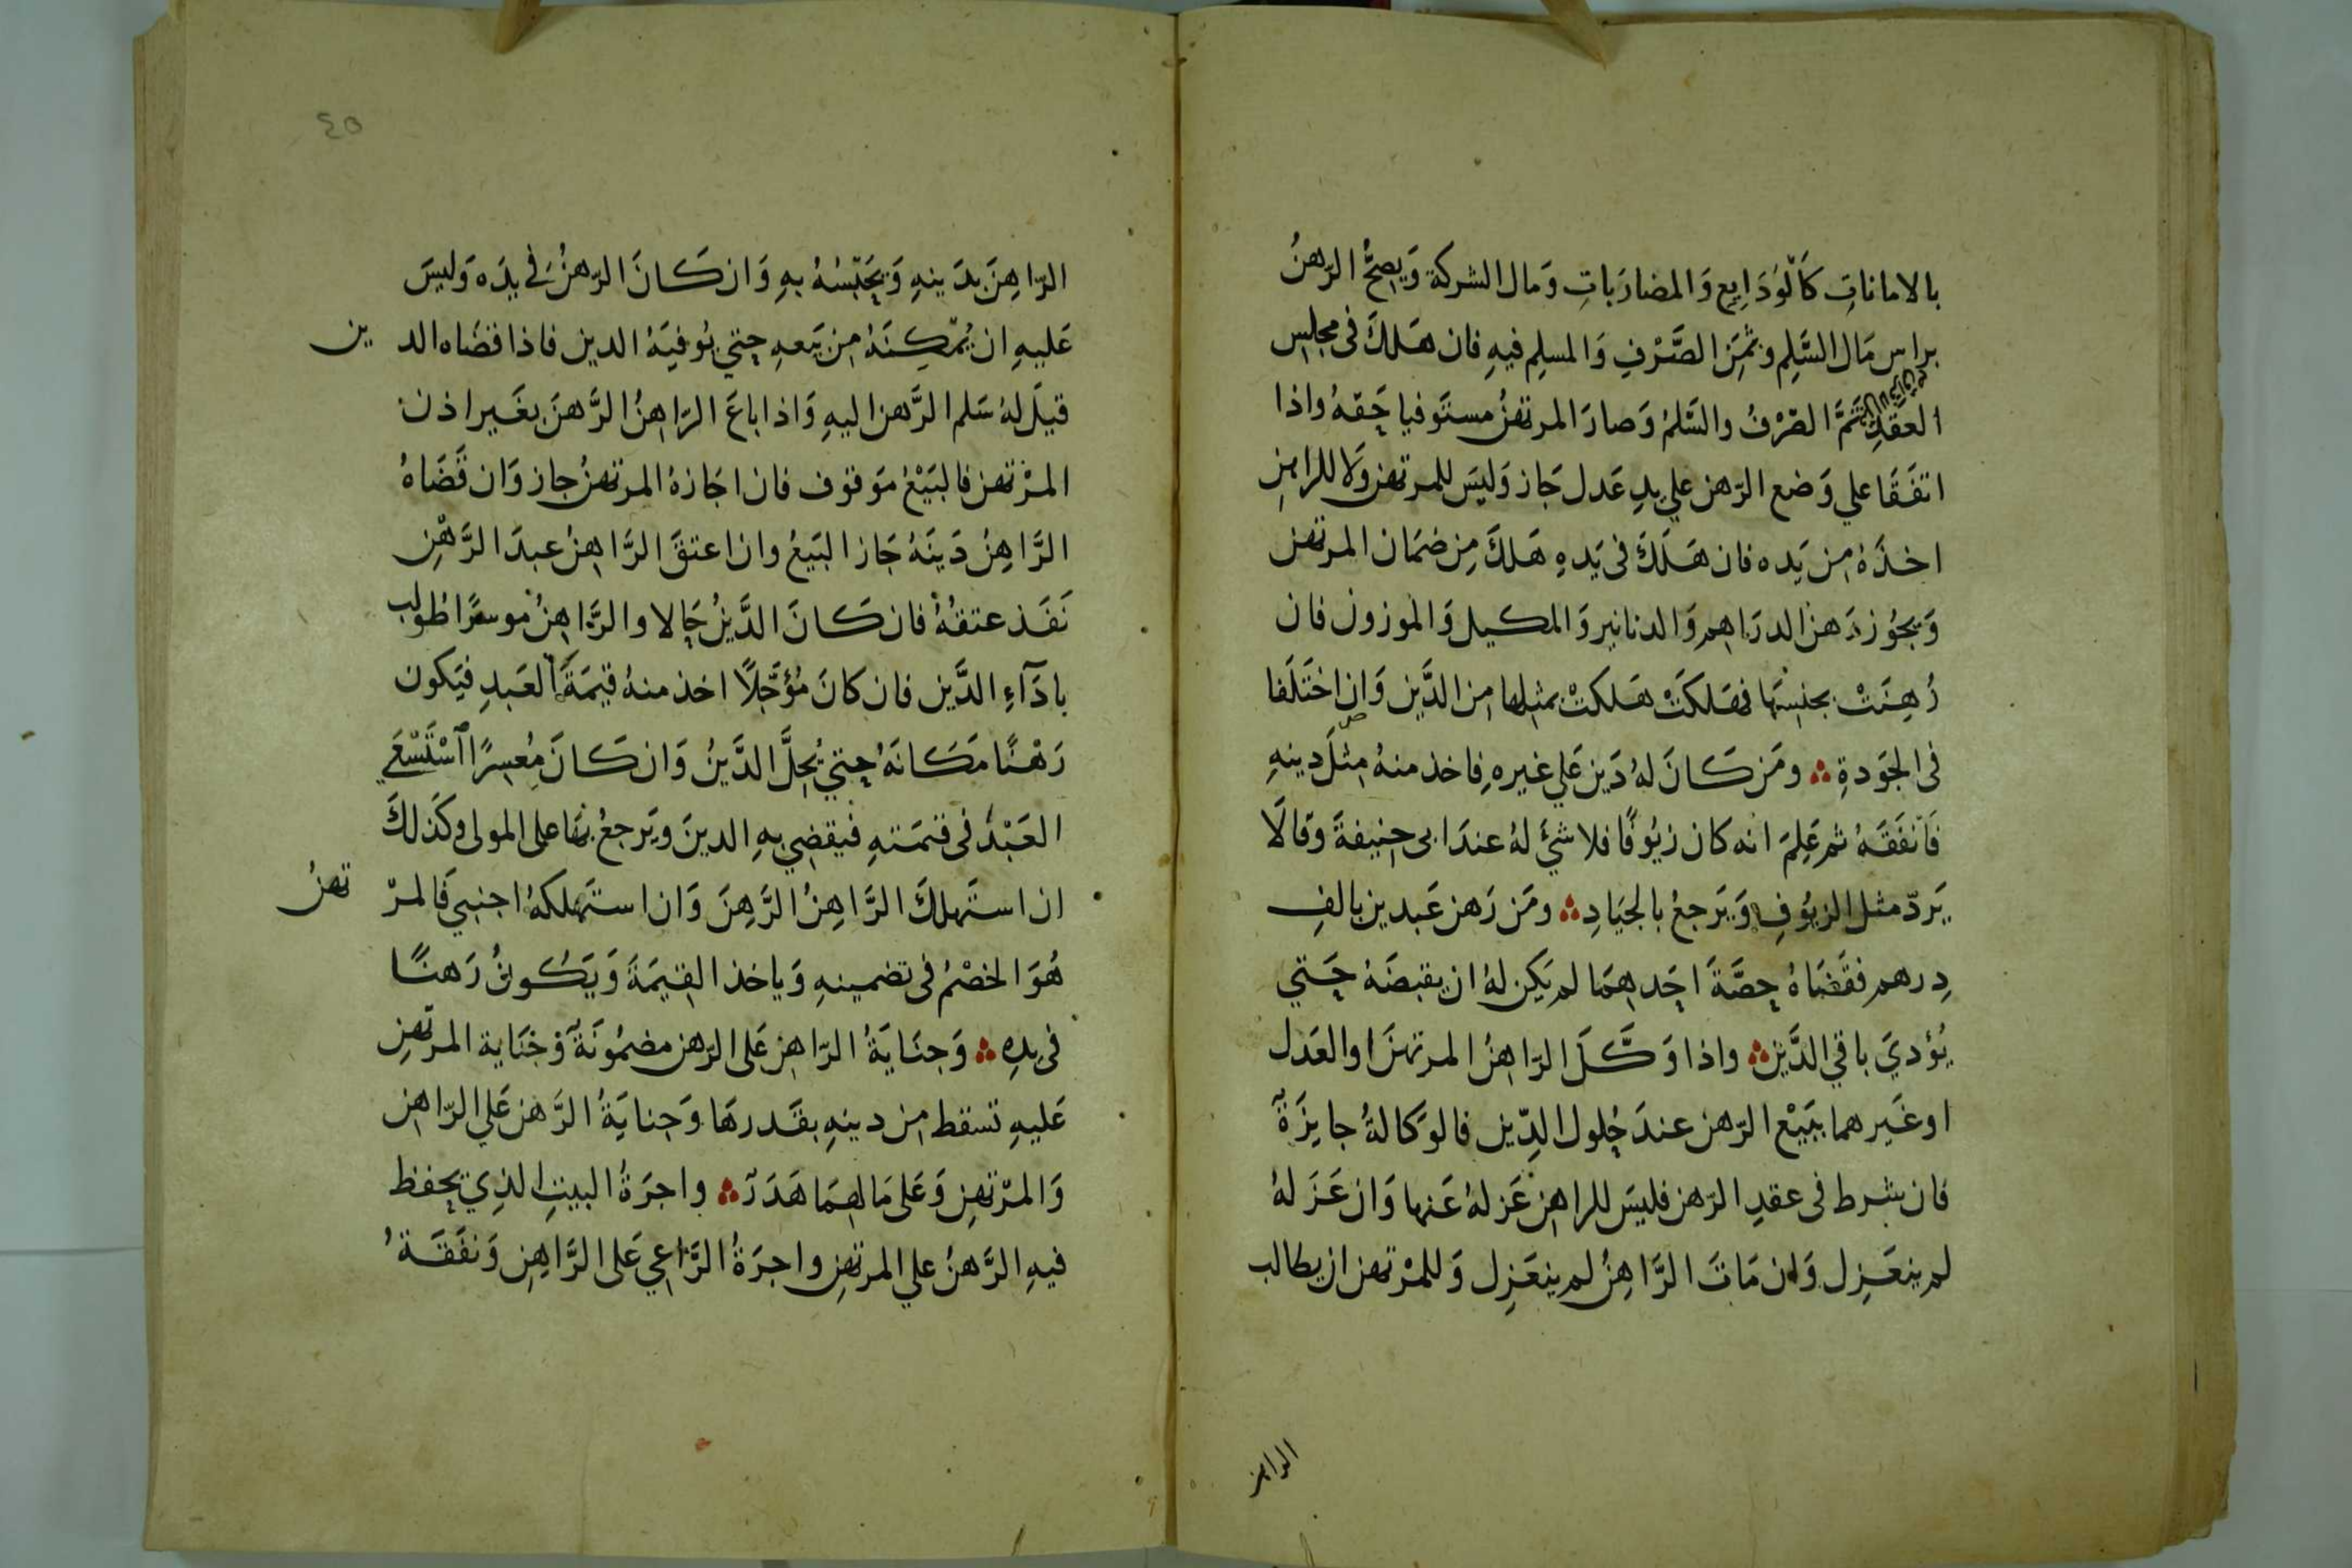 بالاماناتِ كَالْوَدَايِع وَالمضارَباتِ وَمال الشركة وَيصحُّ الرّهنُ
براس مَال السَّلِم وثمَنِ الصَّرْفِ وَالمسلم فيهِ فان هَلكَ فى مجلِس
العقدِ تمَّ الصّرْفُ والسَّلمُ وَصارَ المرتهنُ مستَوفيا حَقهُ واذا
اتفَقَا علي وَضع الرّهن علي يدِ عَدل جَاز وَليسَ للمرتهن وَلا للراهنِ
اخذَهُ من يَده فان هَلَكَ فى يَدهِ هَلكَ مِن ضمَان المرتهن
وَيجوُز رَهن الدرَاهم وَالدنانير وَالمكيل وَالموزون فان
رُهِنَتْ بجنسِهَا فهَلكَتْ هَلكتْ بمثلها من الدَّين وَان اختَلَفا
فى الجَودةِ ومَن كَانَ لهُ دَين عَلي غيرهِ فاخذ منهُ مِثلَ دينهِ
فَانفَقَهُ ثم عَلِمَ انه كان زيُوفًا فلا شئَ لهُ عندَ ابى حنيفةَ وقالَا
يَردّ مثل الزيُوفِ وَيَرجعُ بالجيَادِ ومَن رَهن عَبدين بالفِ
دِرهم فقَضَاهُ حِصَّةَ احَدهمَا لم يَكن لهُ ان يقبضَهُ حَتي
يُؤديَ باقي الدَّين واذا وَكَّلَ الرّاهنُ المرتهنَ او العَدل
او غَيرهما ببَيْع الرّهن عندَ حُلول الدِّين فالوَكالةُ جايِزَةٌ
فان شرط فى عقدِ الرّهن فليسَ للراهن عَزلهُ عَنها وَان عَزَلهُ
لم ينعَزِل وَان مَاتَ الرَّاهِنُ لم ينعَزِل وَللمْرتهن ان يطالب
الراهن
٤٥
الرّاهِنَ بدَينهِ وَيحَبّسُهُ بهِ وَان كَانَ الرّهنُ فى يدَه وَليسَ
عَليهِ ان يُمّكِنَهُ من بَيَعهِ حتي يُوفيَهُ الدين فاذا قضَاه الدين
قيلَ لهُ سَلم الرَّهن اليهِ وَاذا باعَ الرّاهِنُ الرَّهنَ بغَير اذن
المرْتهن فالبَيْعُ مَوقوف فان اجَازهُ المرتهنُ جاز وَان قَضَاهُ
الرَّاهِنُ دَينَهُ جَاز البَيعُ وان اعتقَ الرَّاهِنُ عبدَ الرَّهْنِ
نَفَذ عتقُهُ فان كَانَ الدَّينُ حَالا والرَّاهِنُ موسرًا طولب
بادَآءِ الدَّين فان كانَ مُؤجَّلًا اخذ منهُ قيمَةَ العَبدِ فيَكون
رَهْنًا مَكَانَهُ حتي يُحِلَّ الدَّينُ وَان كَانَ مُعِسرًا اسْتَسْعَي
العَبْدُ فى قيمَتهِ فيقضى بهِ الدينَ ويَرجعُ بهَا على المولى وكَذلكَ
ان استَهلكَ الرَّاهِنُ الرَّهِنَ وَان استَهلكهُ اجنبي فَالمرْتهنُ
هُوَ الخصْمُ فى تضمينهِ وَياخذ القِيمَةَ وَيَكُونُ رَهنًا
فى يدِهِ وَجنَايَةُ الرّاهن عَلى الرّهن مضمُونَةٌ وَجنَاية المرتهنِ
عَليهِ تسقط من دينهِ بقَدرهَا وَجنايَةُ الرَّهن عَلي الرّاهن
وَالمرْتهنِ وَعَلى مَالهمَا هَدَرٌ واجرَةُ البيتِ الذِي يحفظ
فيهِ الرَّهنُ علي المرتهنِ واجرَةُ الرَّاعِي عَلى الرَّاهِنِ وَنفَقَةُ